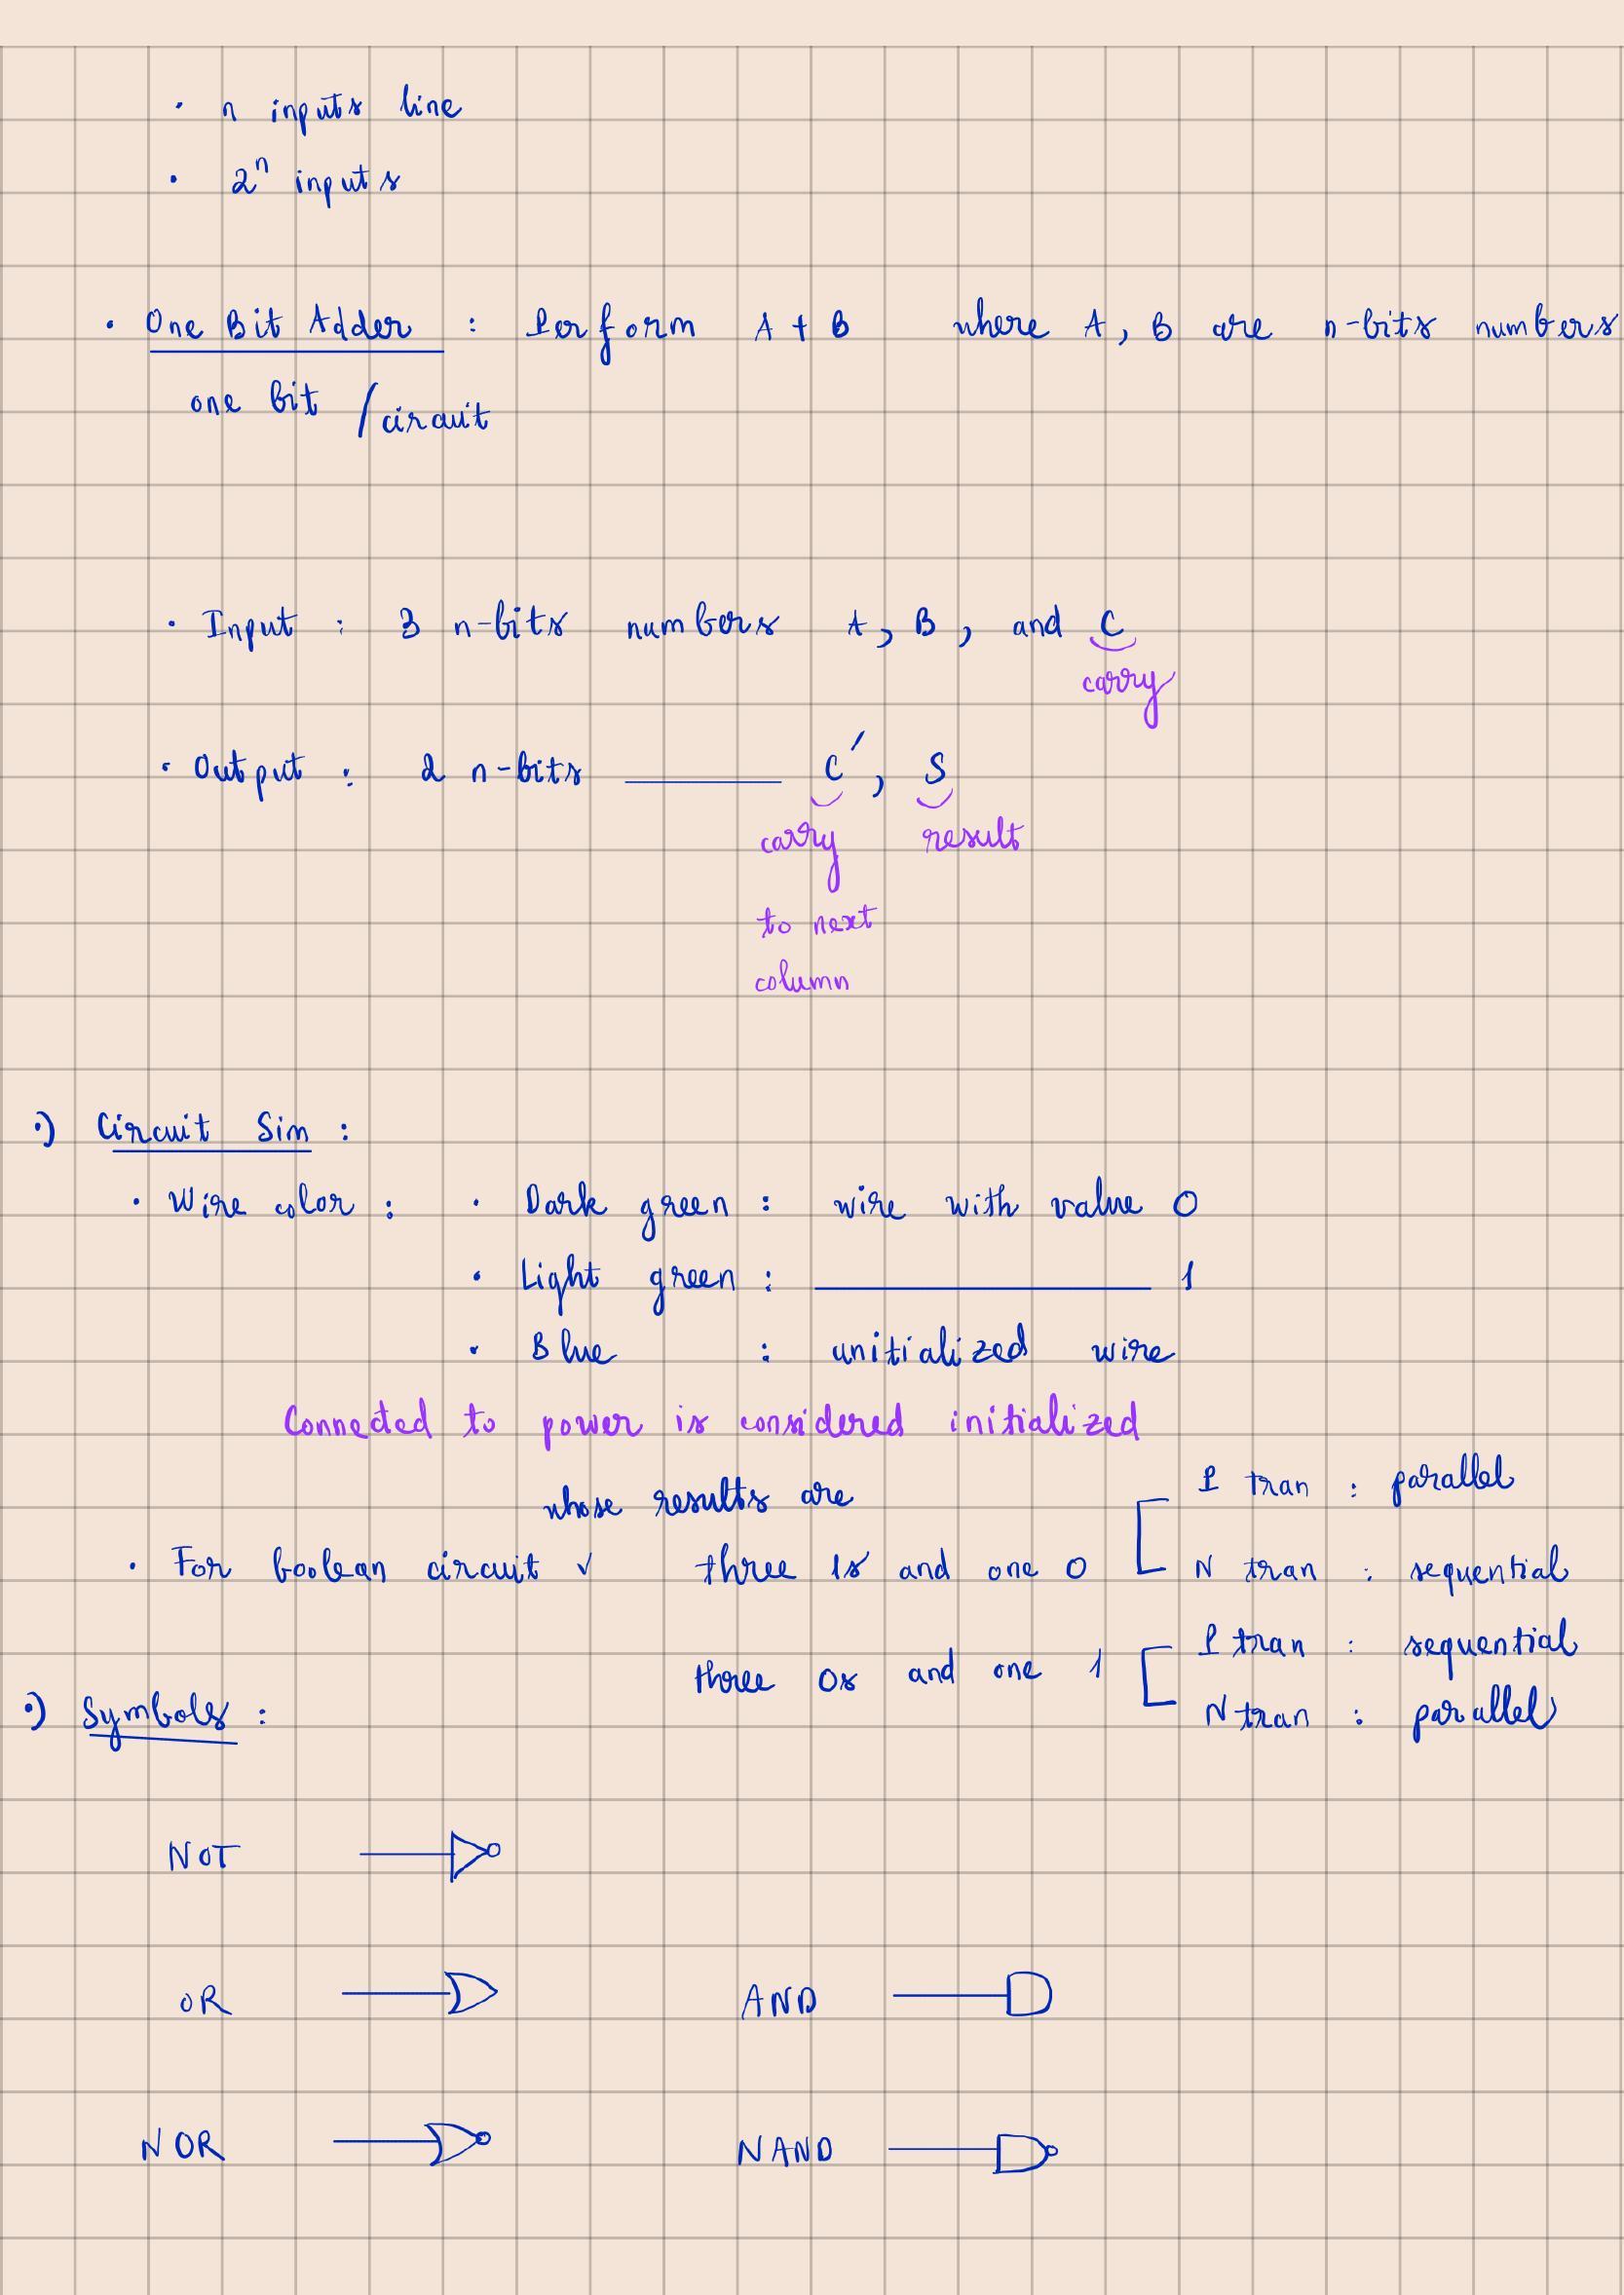 • n inputs line
• 2ⁿ inputs
• One Bit Adder : Perform A + B where A, B are n-bits numbers
one bit / circuit
• Input : 3 n-bits numbers A, B, and C
carry
• Output : 2 n-bits ______ C′, S
carry result
to next
column
•) Circuit Sim :
• Wire color : • Dark green : wire with value 0
• Light green : ______ 1
• Blue : unitialized wire
Connected to power is considered initialized
whose results are
P tran : parallel
• For boolean circuit ✓ three 1s and one 0
N tran : sequential
three 0s and one 1
P tran : sequential
N tran : parallel
•) Symbols :
NOT
OR AND
NOR NAND